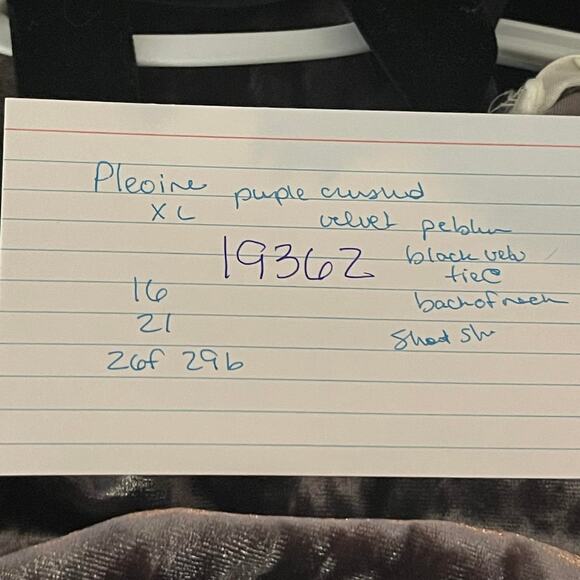 Pleoine purple crusud
XL velvet peblum
19362 black velv
tie@
16 back of neck
21
Short slv
26f 29b